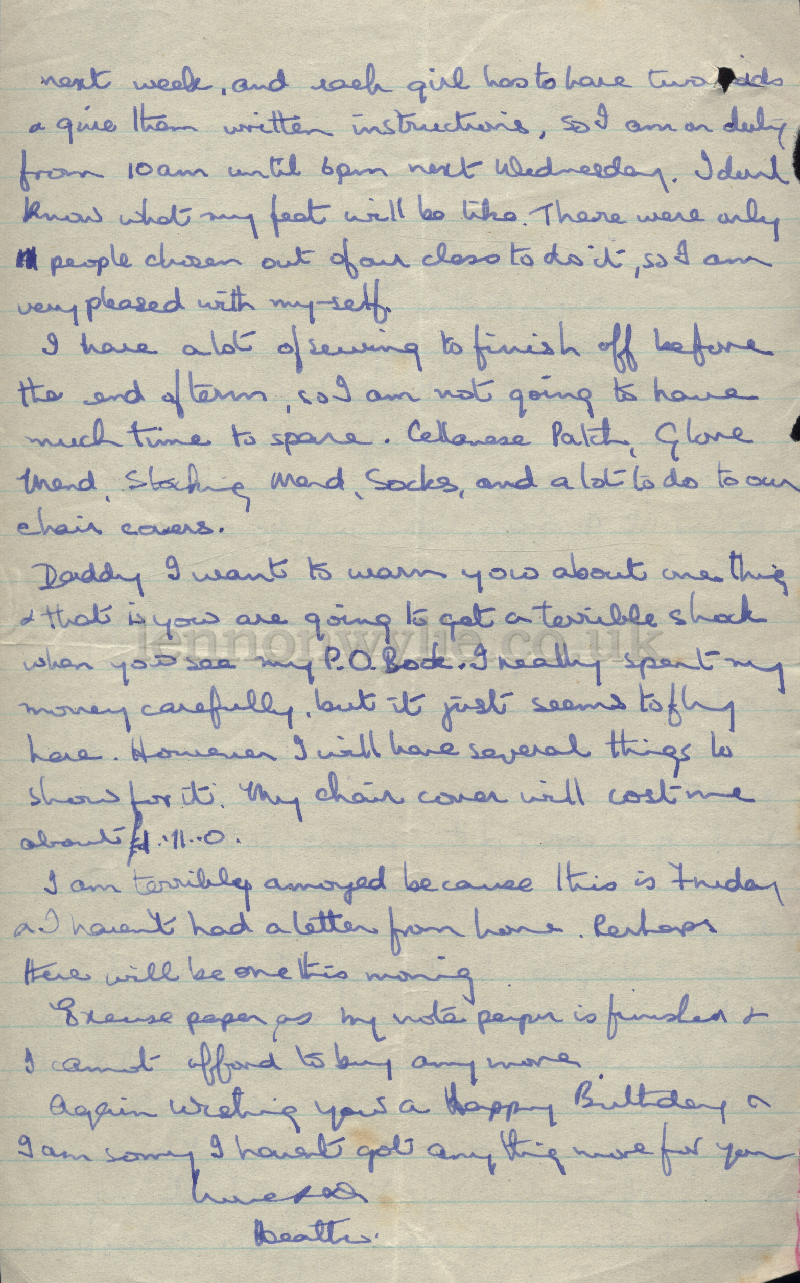 next week, and each girl has to have two
& give them written instructions, so I am on duty
from 10am until 6pm next Wednesday. I don't
know what my feet will be like. There were only
people chosen out of our class to do it, so I am
very pleased with my-self.
I have a lot of sewing to finish off before
the end of term, so I am not going to have
much time to spare. Cellanese Patch, Glove
Mend, Stocking Mend, Socks, and a lot to do to our
chair covers.
Daddy I want to warn you about one thing
& that is you are going to get a terrible shock
lennonwylie.co.uk
when you see my P.O. Book. I really spent my
money carefully, but it just seems to fly
here. However I will have several things to
show for it. My chair cover will cost me
about £1..11..0.
I am terribly annoyed because this is Friday
& I haven't had a letter from home. Perhaps
there will be one this morning
Excuse paper, as my note paper is finished &
I cannot afford to buy any more.
Again wishing you a Happy Birthday &
I am sorry I haven't got anything more for you
Heather.